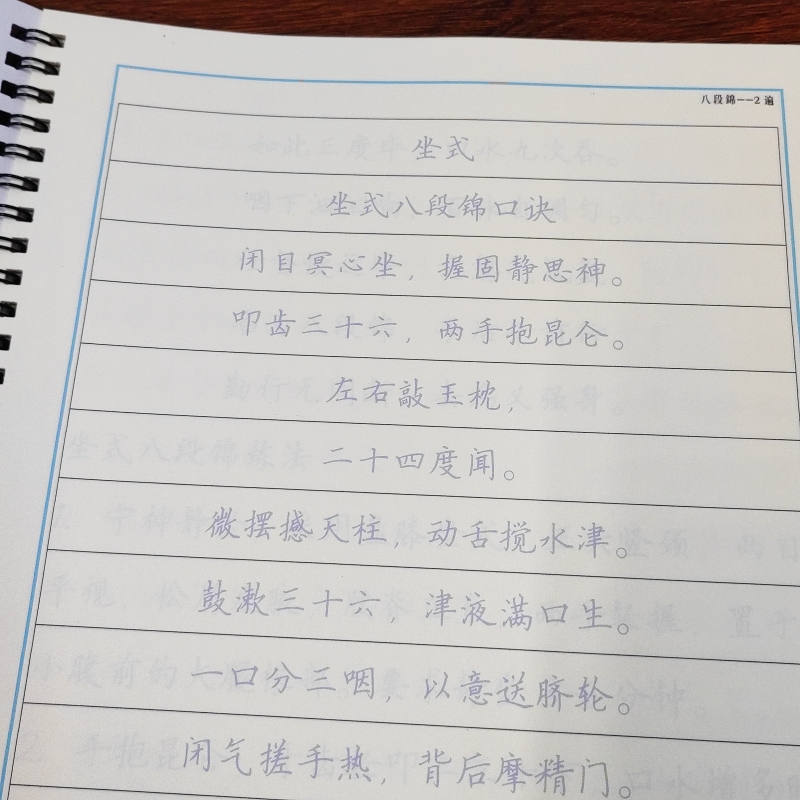 八段錦——2 遍
坐式
坐式八段锦口诀
闭目冥心坐，握固静思神。
叩齿三十六，两手抱昆仑。
左右敲玉枕，
二十四度闻。
微摆撼天柱，动舌搅水津。
鼓漱三十六，津液满口生。
一口分三咽，以意送脐轮。
闭气搓手热，背后摩精门。